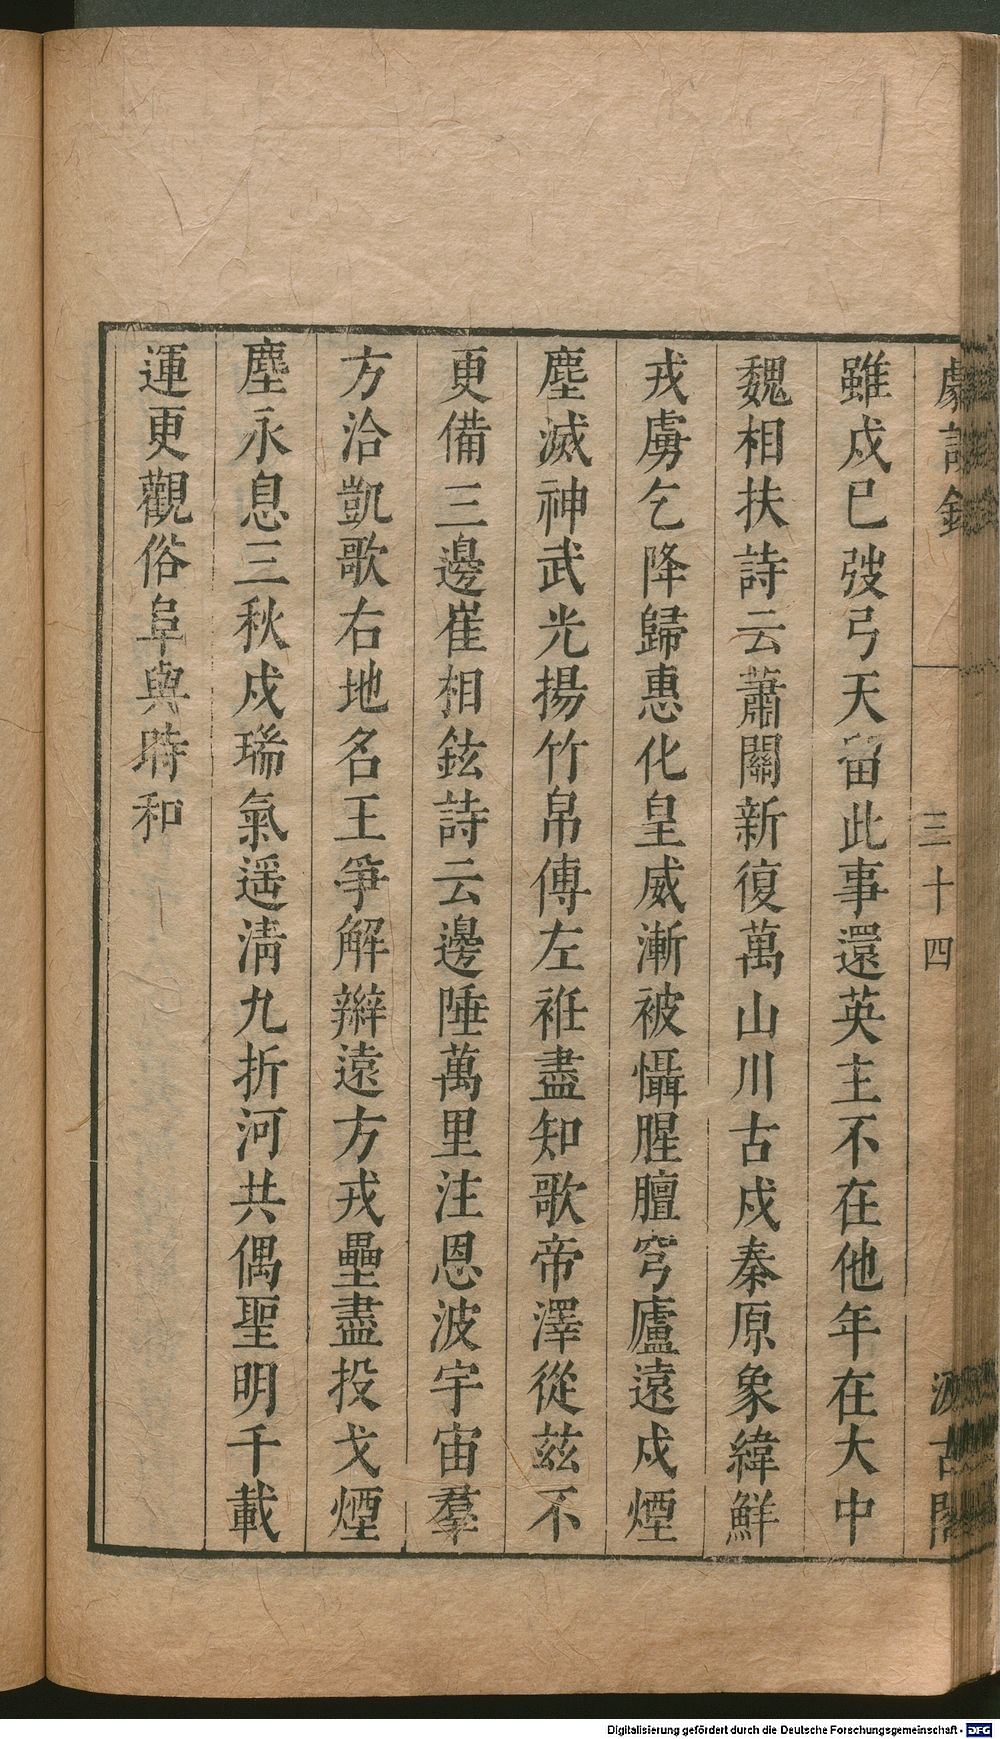 劇談錄
三十四
汲古閣
雖戍已弢弓天留此事還英主不在他年在大中
魏相扶詩云蕭關新復萬山川古戍秦原象緯鮮
戎虜乞降歸惠化皇威漸被懾腥膻穹廬遠戍煙
塵滅神武光揚竹帛傳左袵盡知歌帝澤從茲不
更備三邊崔相鉉詩云邊陲萬里注恩波宇宙羣
方洽凱歌右地名王爭解辮遠方戎壘盡投戈煙
塵永息三秋戍瑞氣遥淸九折河共偶聖明千載
運更觀俗阜與時和
Digitalisierung gefördert durch die Deutsche Forschungsgemeinschaft - DFG